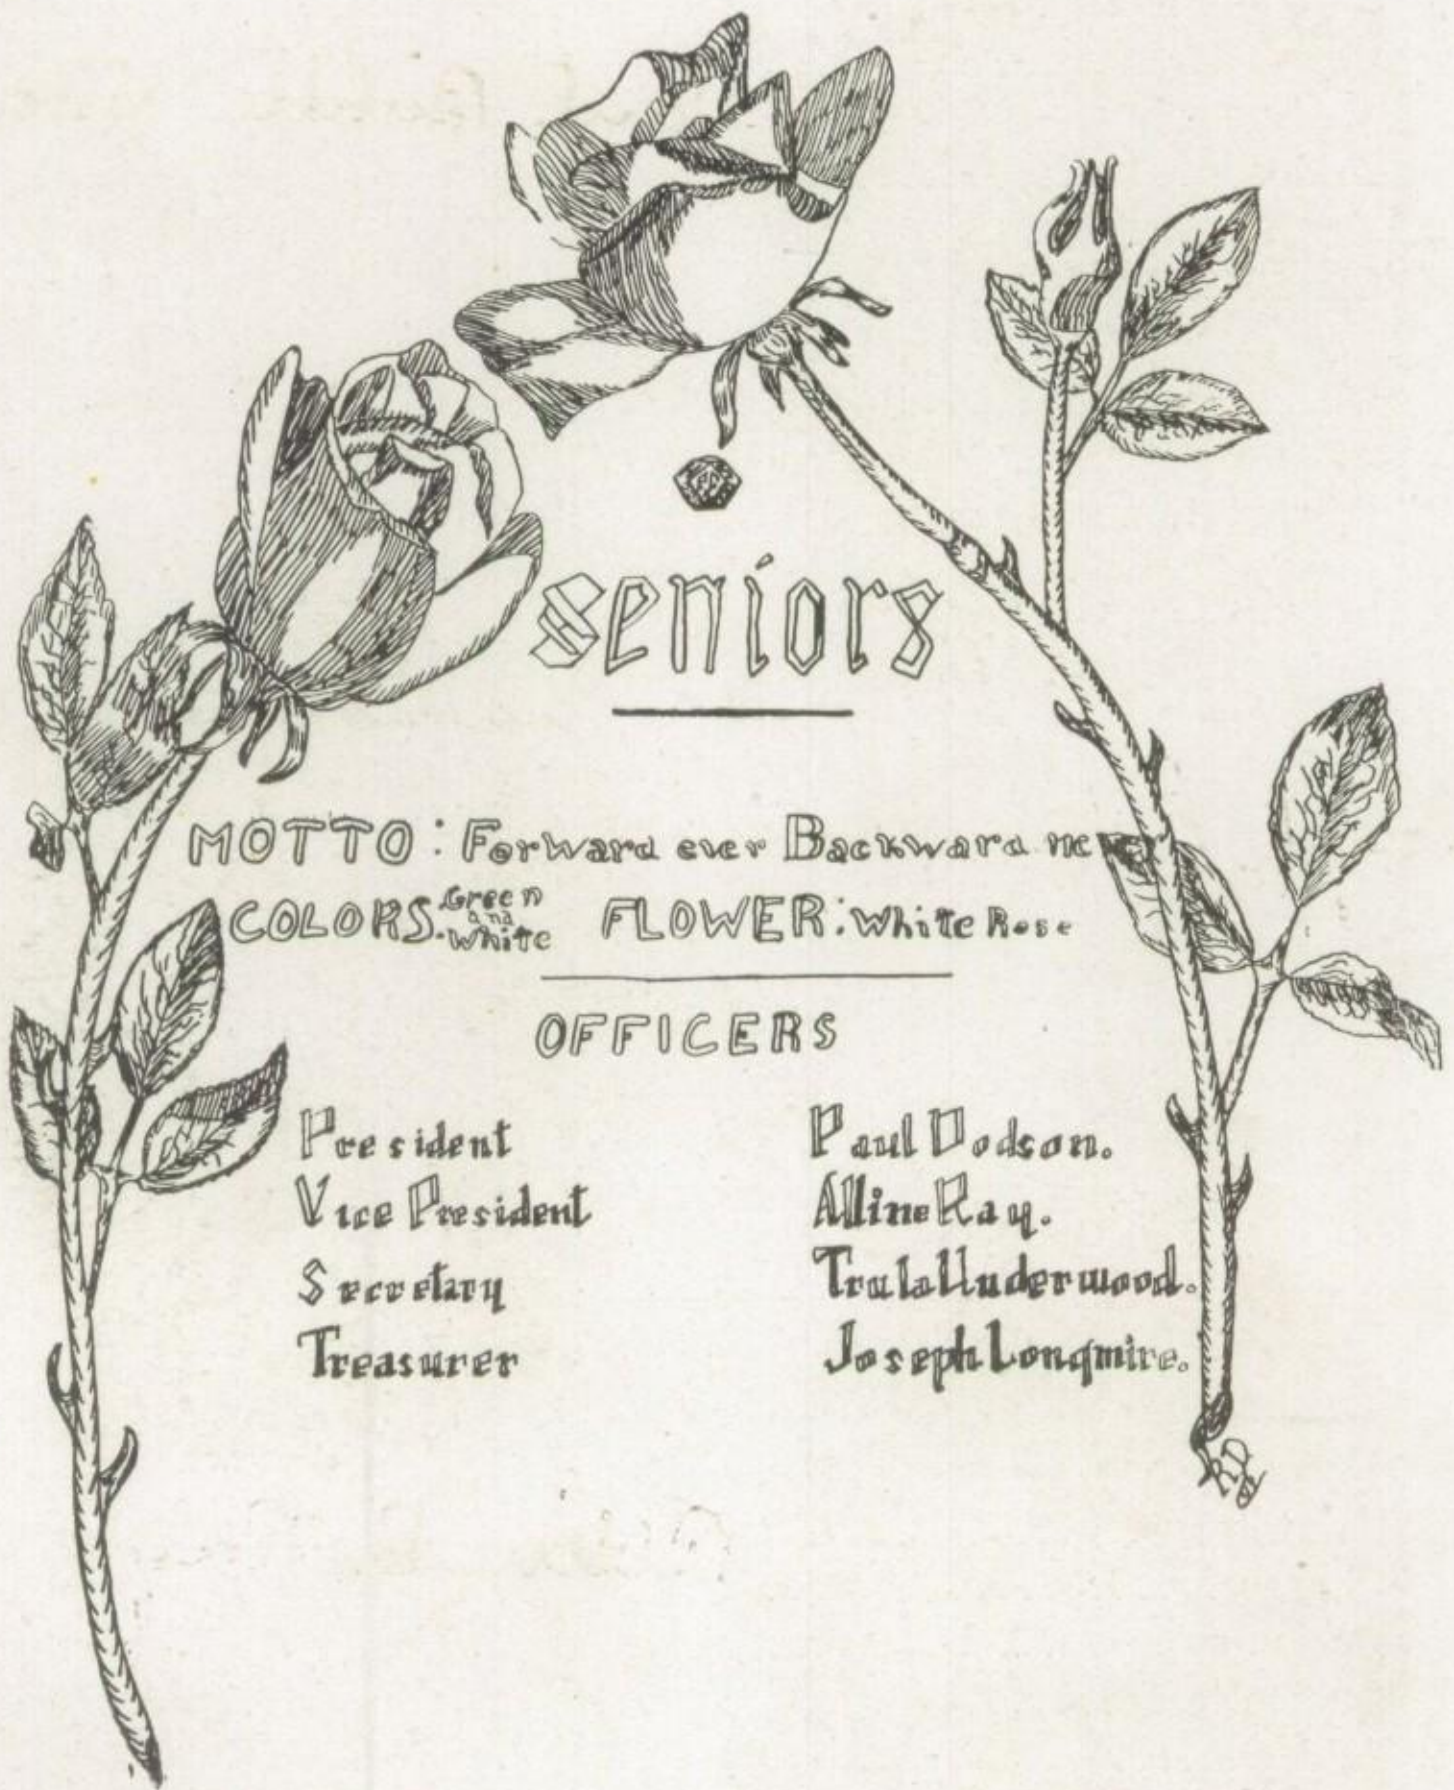 seniors
MOTTO: Forward ever Backward ne
COLORS: Green and White FLOWER: White Rose
OFFICERS
President Paul Dodson.
Vice President Alline Ray.
Secretary Trula Underwood.
Treasurer Joseph Longmire.
RD